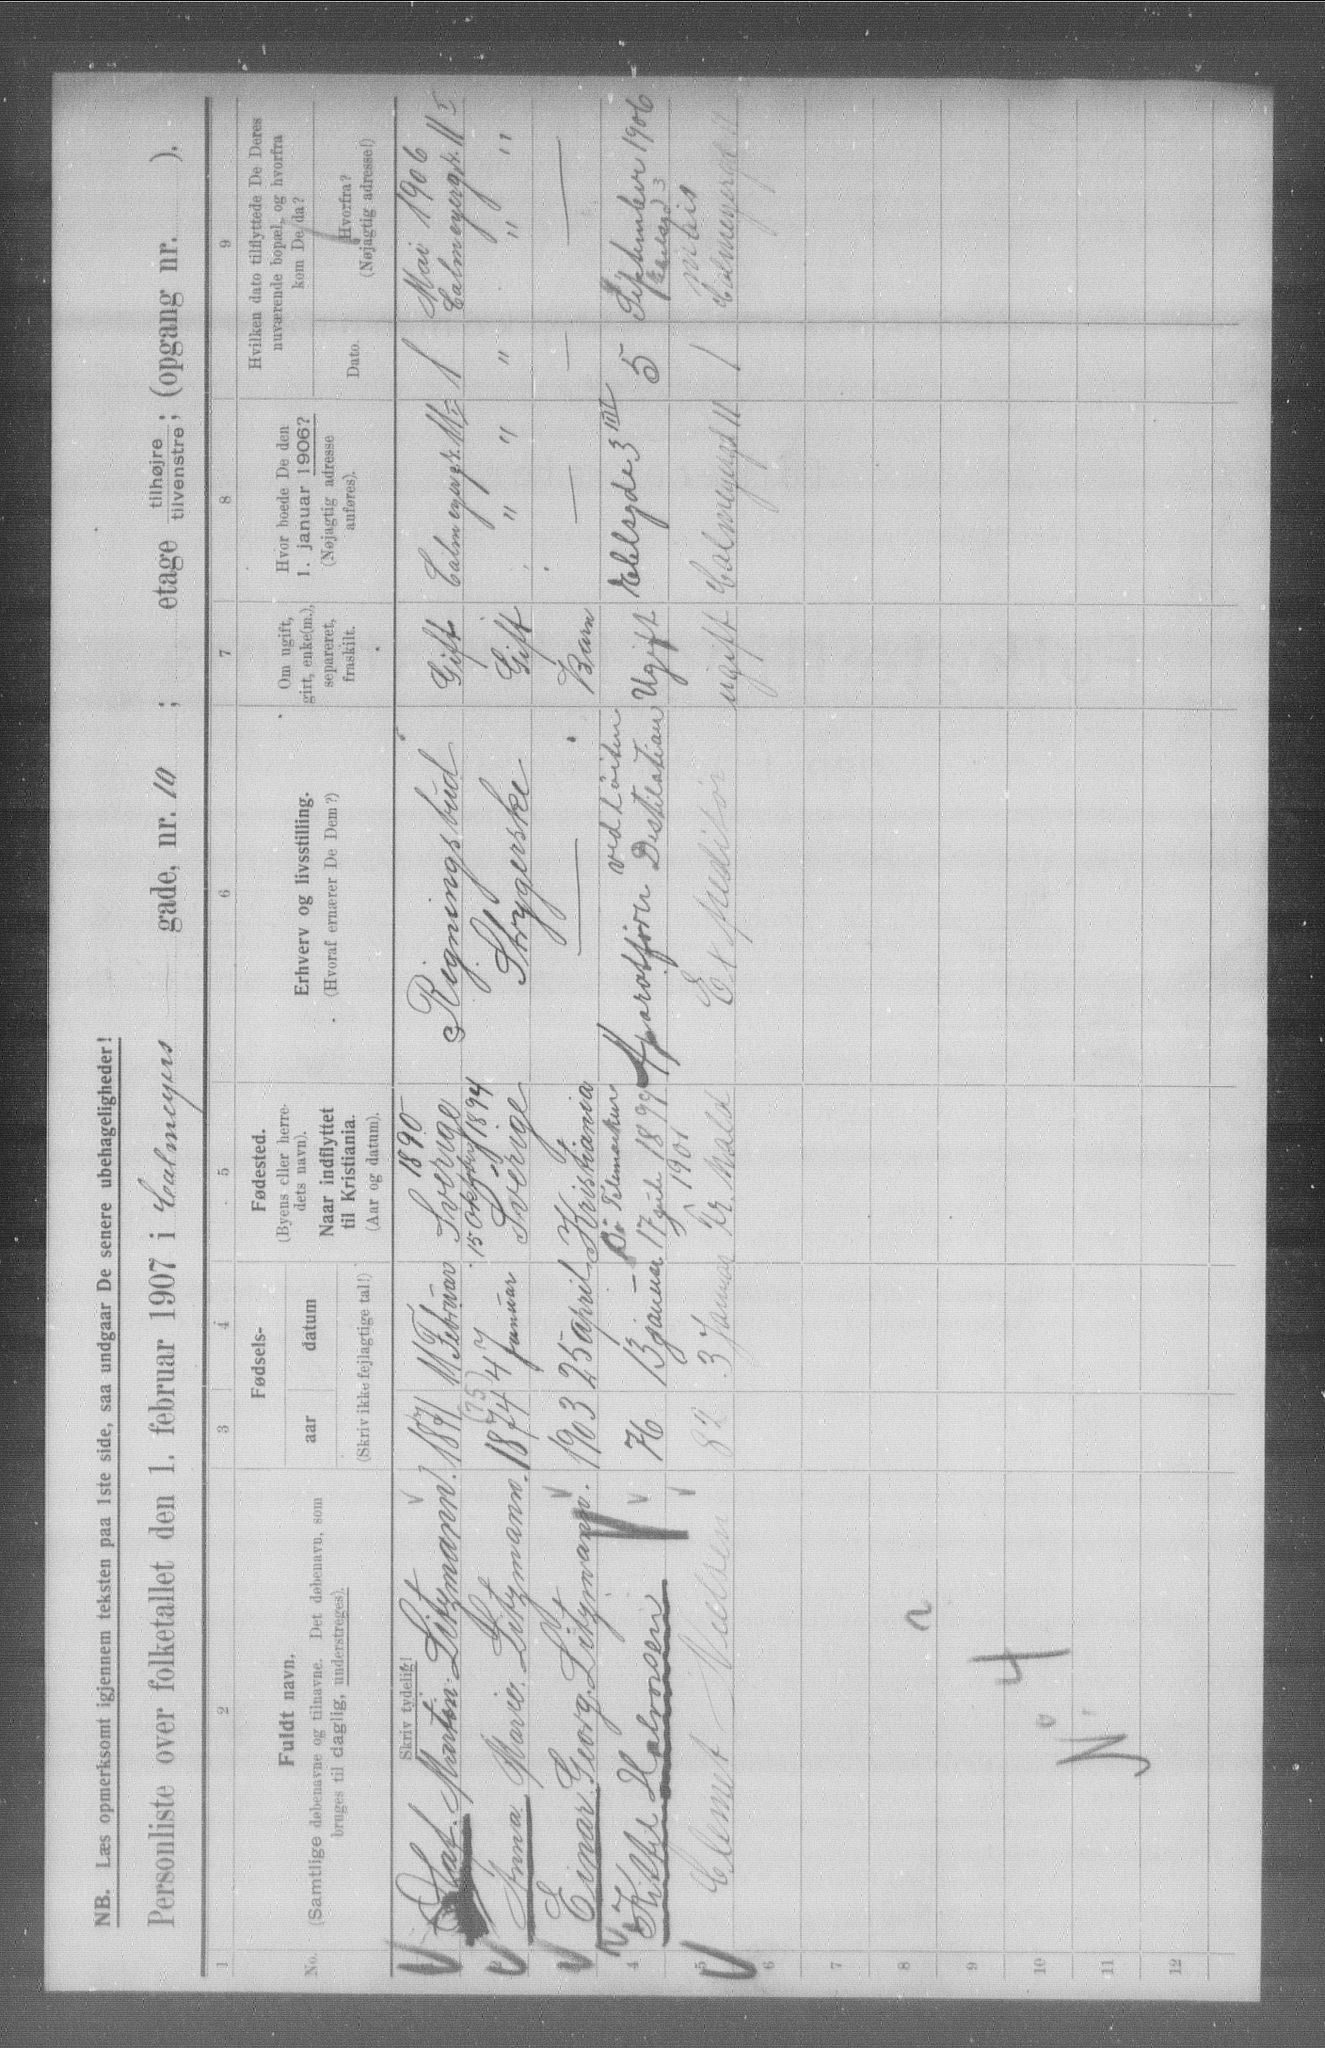 NB. Læs opmerksomt igjennem teksten paa 1ste side, saa undgaar De senere ubehageligheder!
Personliste over folketallet den 1. februar 1907 i Calmeyers gade, nr. 10 ; etage tilhøjre tilvenstre; (opgang nr. ).
1 2 3 4 5 6 7 8 9
No.
Fuldt navn.
(Samtlige døbenavne og tilnavne. Det døbenavn, som
bruges til daglig, understreges).
Skriv tydelig!
Fødsels-
aar datum
(Skriv ikke fejlagtige tal!)
Fødested.
(Byens eller herre-
dets navn).
Naar indflyttet
til Kristiania.
(Aar og datum).
Erhverv og livsstilling.
(Hvoraf ernærer De Dem?)
Om ugift,
gift, enke(m.),
separeret,
fraskilt.
Hvor boede De den
1. januar 1906?
(Nøjagtig adresse
anføres).
Hvilken dato tilflyttede De Deres
nuværende bopæl, og hvorfra
kom De da?
Dato.
Hvorfra?
(Nøjagtig adresse!)
Olaf Martin Litzmann. 1871 11 Februar 1890 Sverige Regningsbud Gift Calmeyergt. 11 1 Mai 1906 Calmeyergt. 11
2 Anna Marie Litzmann. 1874 (75) 4 januar 15 Oktober 1894 Sverige Strygerske Gift " " " " "
Einar Georg Litzmann. 1903 25 april Kristiania — Barn — — —
4 Kittil Halvorsen 76 13 januar Bø Telemarken 17 juli 1899 Aparatfører ved Løiten Destilation Ugift 3 III 5 September 1906 3
5 Clemet 82 3 Januar 1901 Fr.hald Expeditør ugift Calmeyergt 11 1
6
7
8
9
10
11
12
4